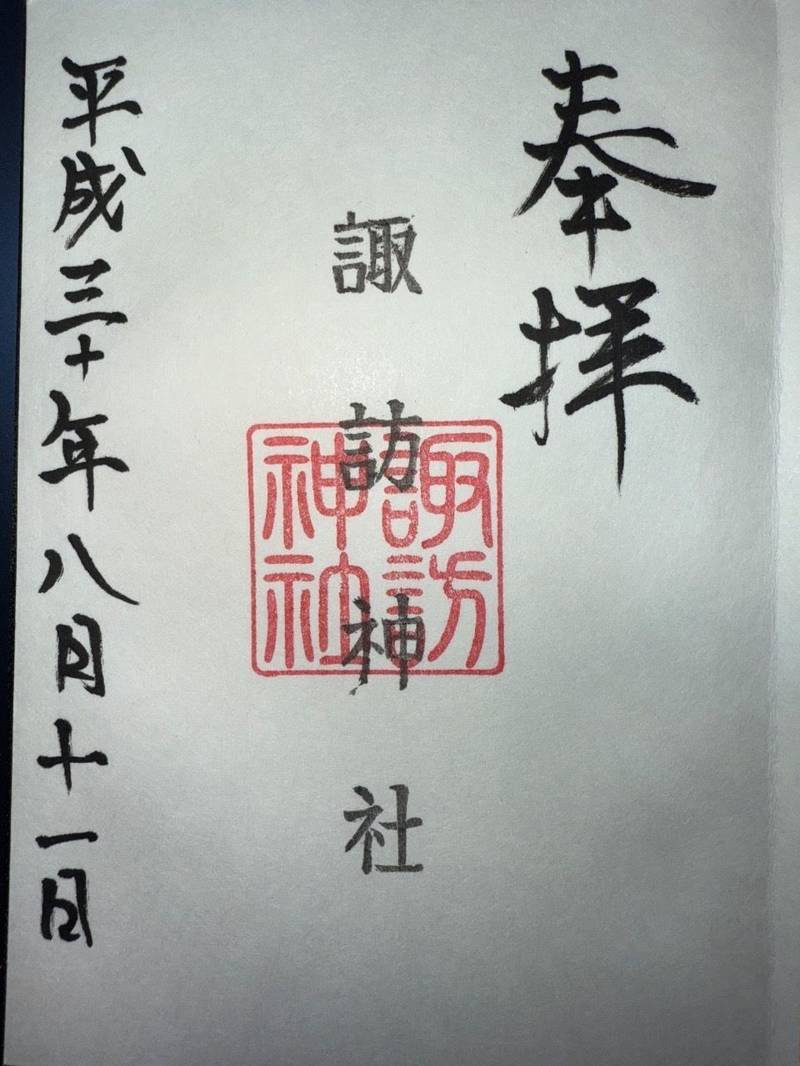 奉拝
諏訪神社
諏訪
神社
平成三十年八月十一日